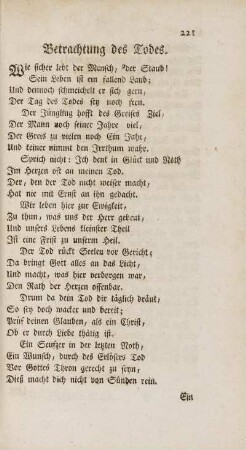 221
Betrachtung des Todes.
Wie sicher lebt der Mensch, der Staub!
Sein Leben ist ein fallend Laub;
Und dennoch schmeichelt er sich gern,
Der Tag des Todes sey noch fern.
Der Jüngling hofft des Greises Ziel,
Der Mann noch seiner Jahre viel,
Der Greis zu vielen noch Ein Jahr,
Und keiner nimmt den Irrthum wahr.
Sprich nicht: Ich denk in Glück und Noth
Im Herzen oft an meinen Tod.
Der, den der Tod nicht weiser macht,
Hat nie mit Ernst an ihn gedacht.
Wir leben hier zur Ewigkeit,
Zu thun, was uns der Herr gebeut,
Und unsers Lebens kleinster Theil
Ist eine Frist zu unserm Heil.
Der Tod rückt Seelen vor Gericht;
Da bringt Gott alles an das Licht,
Und macht, was hier verborgen war,
Den Rath der Herzen offenbar.
Drum da dein Tod dir täglich dräut,
So sey doch wacker und bereit;
Prüf deinen Glauben, als ein Christ,
Ob er durch Liebe thätig ist.
Ein Seufzer in der letzten Noth,
Ein Wunsch, durch des Erlösers Tod
Vor Gottes Thron gerecht zu seyn,
Dieß macht dich nicht von Sünden rein.
Ein